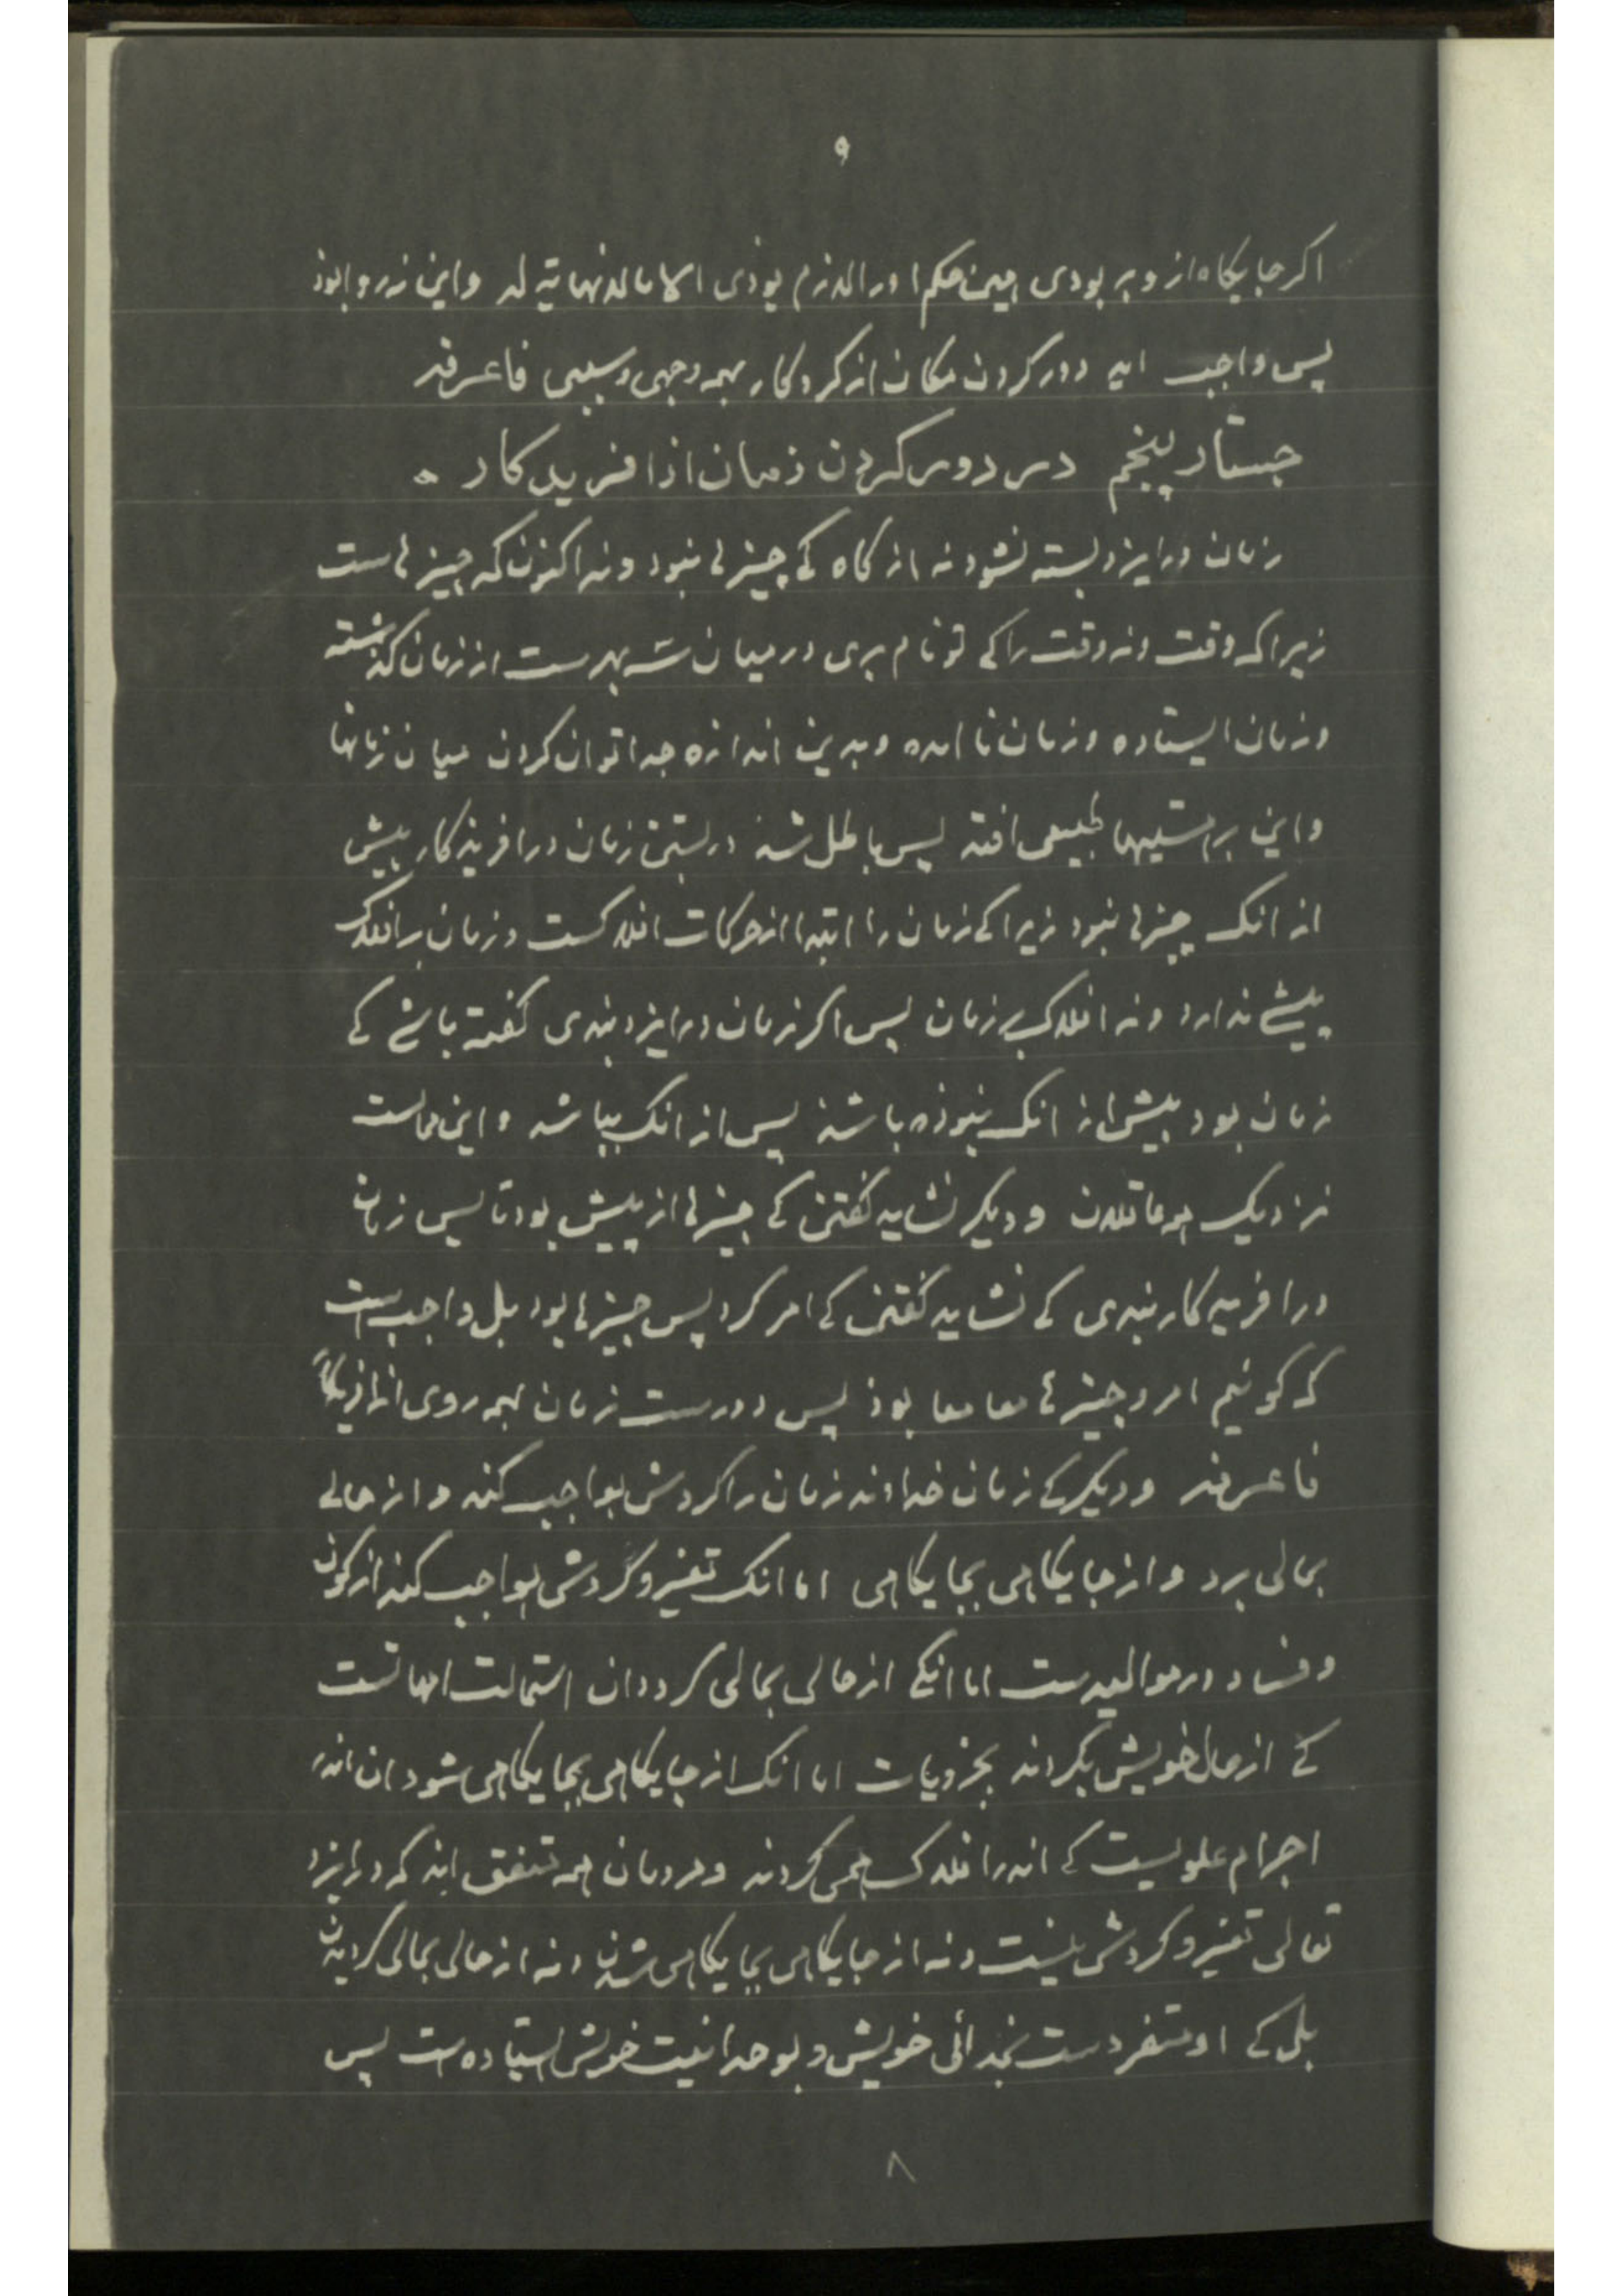 ۹
اکر جایکاه از و بر بودی همین حکم اورا لازم بوذی الا مالانهایة له و این نه روا بوذ
پس واجب اید دور کردن مکان از کردکار بهمه وجهی و سببی فاعرفه
جستار پنجم در دور کردن زمان از افریدکار ه
زمان در ایزد بسته نشود نه از کاه کی چیز لی نبود ونه اکنون که چیز لی است
زیرا که وقت ونه وقت را کی تو نام بری در میان سه بهرست از زمان کذشته
و زمان ایستاده و زمان نا امده و بدین اندازه جدا توان کردن میان زمانها
و این بر هستیهاء طبیعی افتد پس باطل شد در بستن زمان در افریذکار پیش
از انک چیز لی نبود زیرا کی زمان را ابتدا از حرکات افلاکست و زمان بر افلاک
پیشی ندارد ونه افلاک بر زمان پس اکر زمان در ایزد بندی کفته باشی کی
زمان بود پیش از انک نبوذه باشد پس از انک بباشد و این محالست
نزدیک همه عاقلان و دیکر نشاید کفتن کی چیز لی از پیش بود تا پس زمان
در افریدکار بندی کی نشاید کفتن کی امر کرد پس چیز لی بود بل واجب است
که کوئیم امر و چیز لی معا معا بوذ پس دورست زمان بهمه روی از افریذکار
فاعرفه و دیکر کی زمان خداوند زمان را کردش بواجب کند و از حالی
بحالی برد و از جایکاهی بجایکاهی اما انک تغیر و کردش بواجب کند از کون
و فساد در موالیدست اما انکی از حالی بحالی کردد ان استحالت امهاتست
کی از حال خویش بکردند بجزویات اما انک از جایکاهی بجایکاهی شود ان اندر
اجرام علویست کی اندر افلاک همی کردند و مردمان همه متفق اند که در ایزد
تعالی تغیر و کردش نیست ونه از جایکاهی بجایکاهی شدن ونه از حالی بحالی کردیدن
بلی کی او متفردست بخدائی خویش و بوحدانیت خویش ایستاده است پس
۸